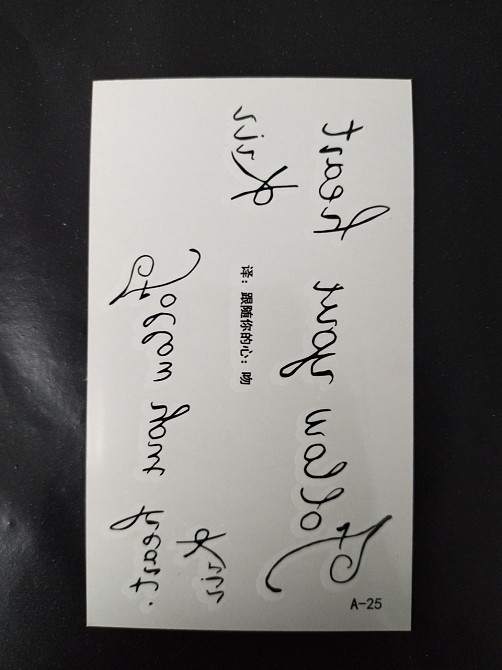 A-25
Follow your heart
kiss
译：跟随你的心：吻
kiss
Follow your heart.